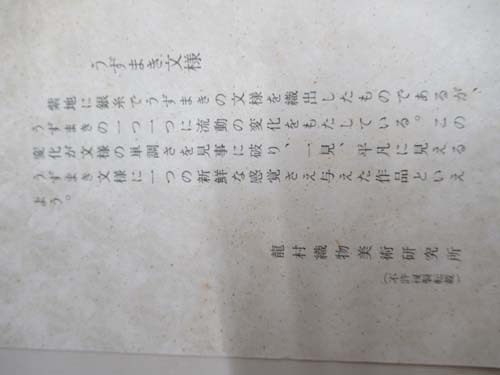 うずまき文様
紫地に銀糸でうずまきの文様を織出したものであるが、
うずまきの一つ一つに流動の変化をもたしている。この
変化が文様の単調さを見事に破り、一見、平凡に見える
うずまき文様に一つの新鮮な感覚さえ与えた作品といえ
よう。
龍村織物美術研究所
(不許複製転載)